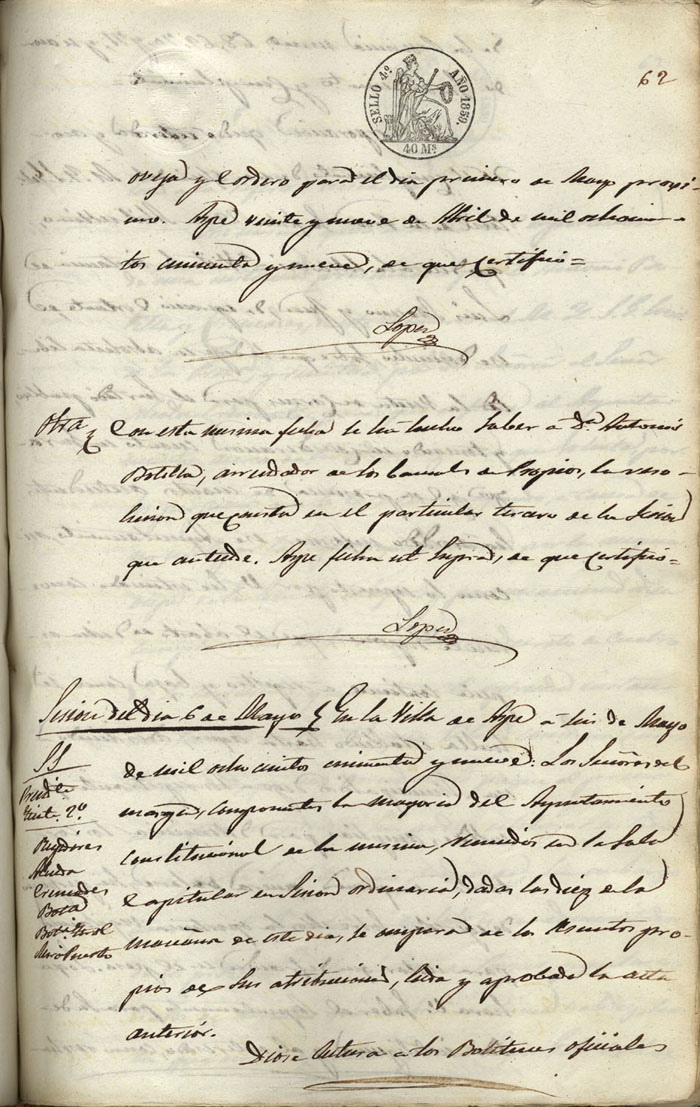 62
SELLO 4º AÑO 1859.
40 Ms.
oveja y Cordero para el dia primero de Mayo procsi-
mo. Aspe veinte y nueve de Abril de mil ochocien-
tos cincuenta y nueve, de que certifico=
Lopez
Otra
Con esta misma fecha se ha hecho saber a Dn. Antonio
Botella, arrendador de los bancales de Propios, la reso-
lucion que consta en el particular tercero de la Sesion
que antecede. Aspe fecha ut supra, de que certifico=
Lopez
Sesion del dia 6 de Mayo
En la Villa de Aspe a seis de Mayo
de mil ochocientos cincuenta y nueve: Los Señores del
margen, componentes la mayoria del Ayuntamiento
constitucional de la misma, reunidos en la Sala
Capitular en Sesion ordinaria, dadas las diez de la
mañana de este dia, se ocupara de los asuntos pro-
pios de sus atribuciones, leida y aprobada la acta
anterior.
Diose lectura a los Boletines oficiales
SS
Presidte
Tente. 2º
Regidores
Cremades
Botella